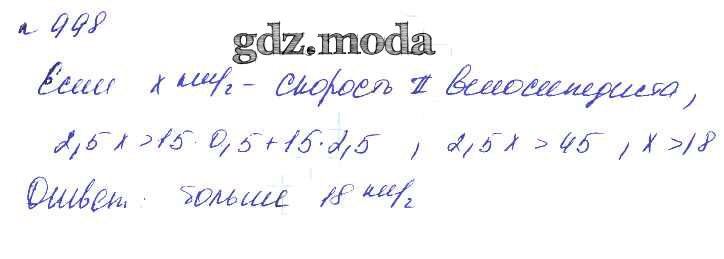 № 998
gdz.moda
Если x км/ч - скорость II велосипедиста,
2,5x > 15 · 0,5 + 15 · 2,5 , 2,5x > 45 , x > 18
Ответ: больше 18 км/ч